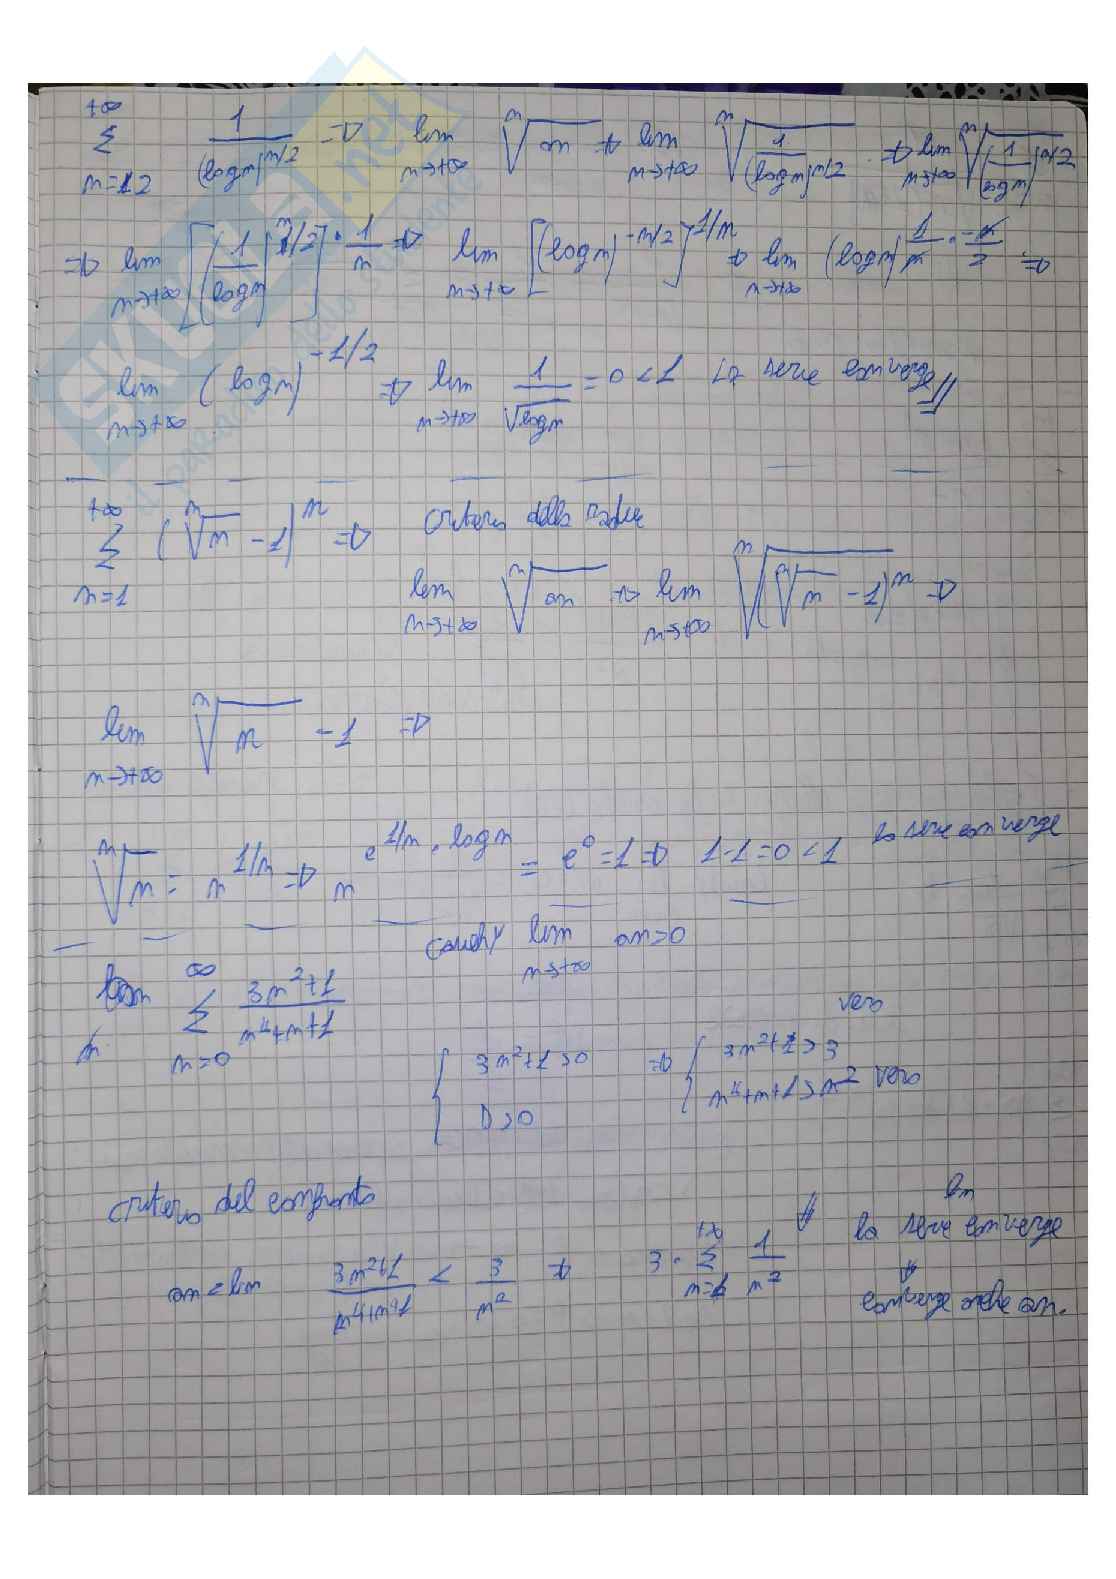 +∞ Σ n=2 1/(log n)^n/2 => lim n→+∞ ⁿ√an => lim n→+∞ ⁿ√1/(log n)^n/2 => lim n→+∞ ⁿ√(1/log n)^n/2
=> lim n→+∞ [(1/log n)^n/2]·1/n => lim n→+∞ [(log n)^-n/2]^1/n => lim n→+∞ (log n)^1/n · -n/2 =>
lim n→+∞ (log n)^-1/2 => lim n→+∞ 1/√log n = 0 < 1 la serie converge
+∞ Σ n=1 (ⁿ√n - 1)^n => criterio della radice
lim n→+∞ ⁿ√an => lim n→+∞ ⁿ√(ⁿ√n - 1)^n =>
lim n→+∞ ⁿ√n - 1 =>
ⁿ√n = n^1/n => n e^1/n · log n = e^0 = 1 => 1-1 = 0 < 1 la serie converge
Cauchy lim n→+∞ an=0
∞ Σ n=0 3n²+1/n⁴+n+1
vero
{ 3n²+1>0 => { 3n²+1>3
D>0 n⁴+n+1>n² vero
criterio del confronto
bn
an = lim 3n²+1/n⁴+n+1 < 3/n² => 3· +∞ Σ n=1 1/n² => la serie converge
converge anche an.